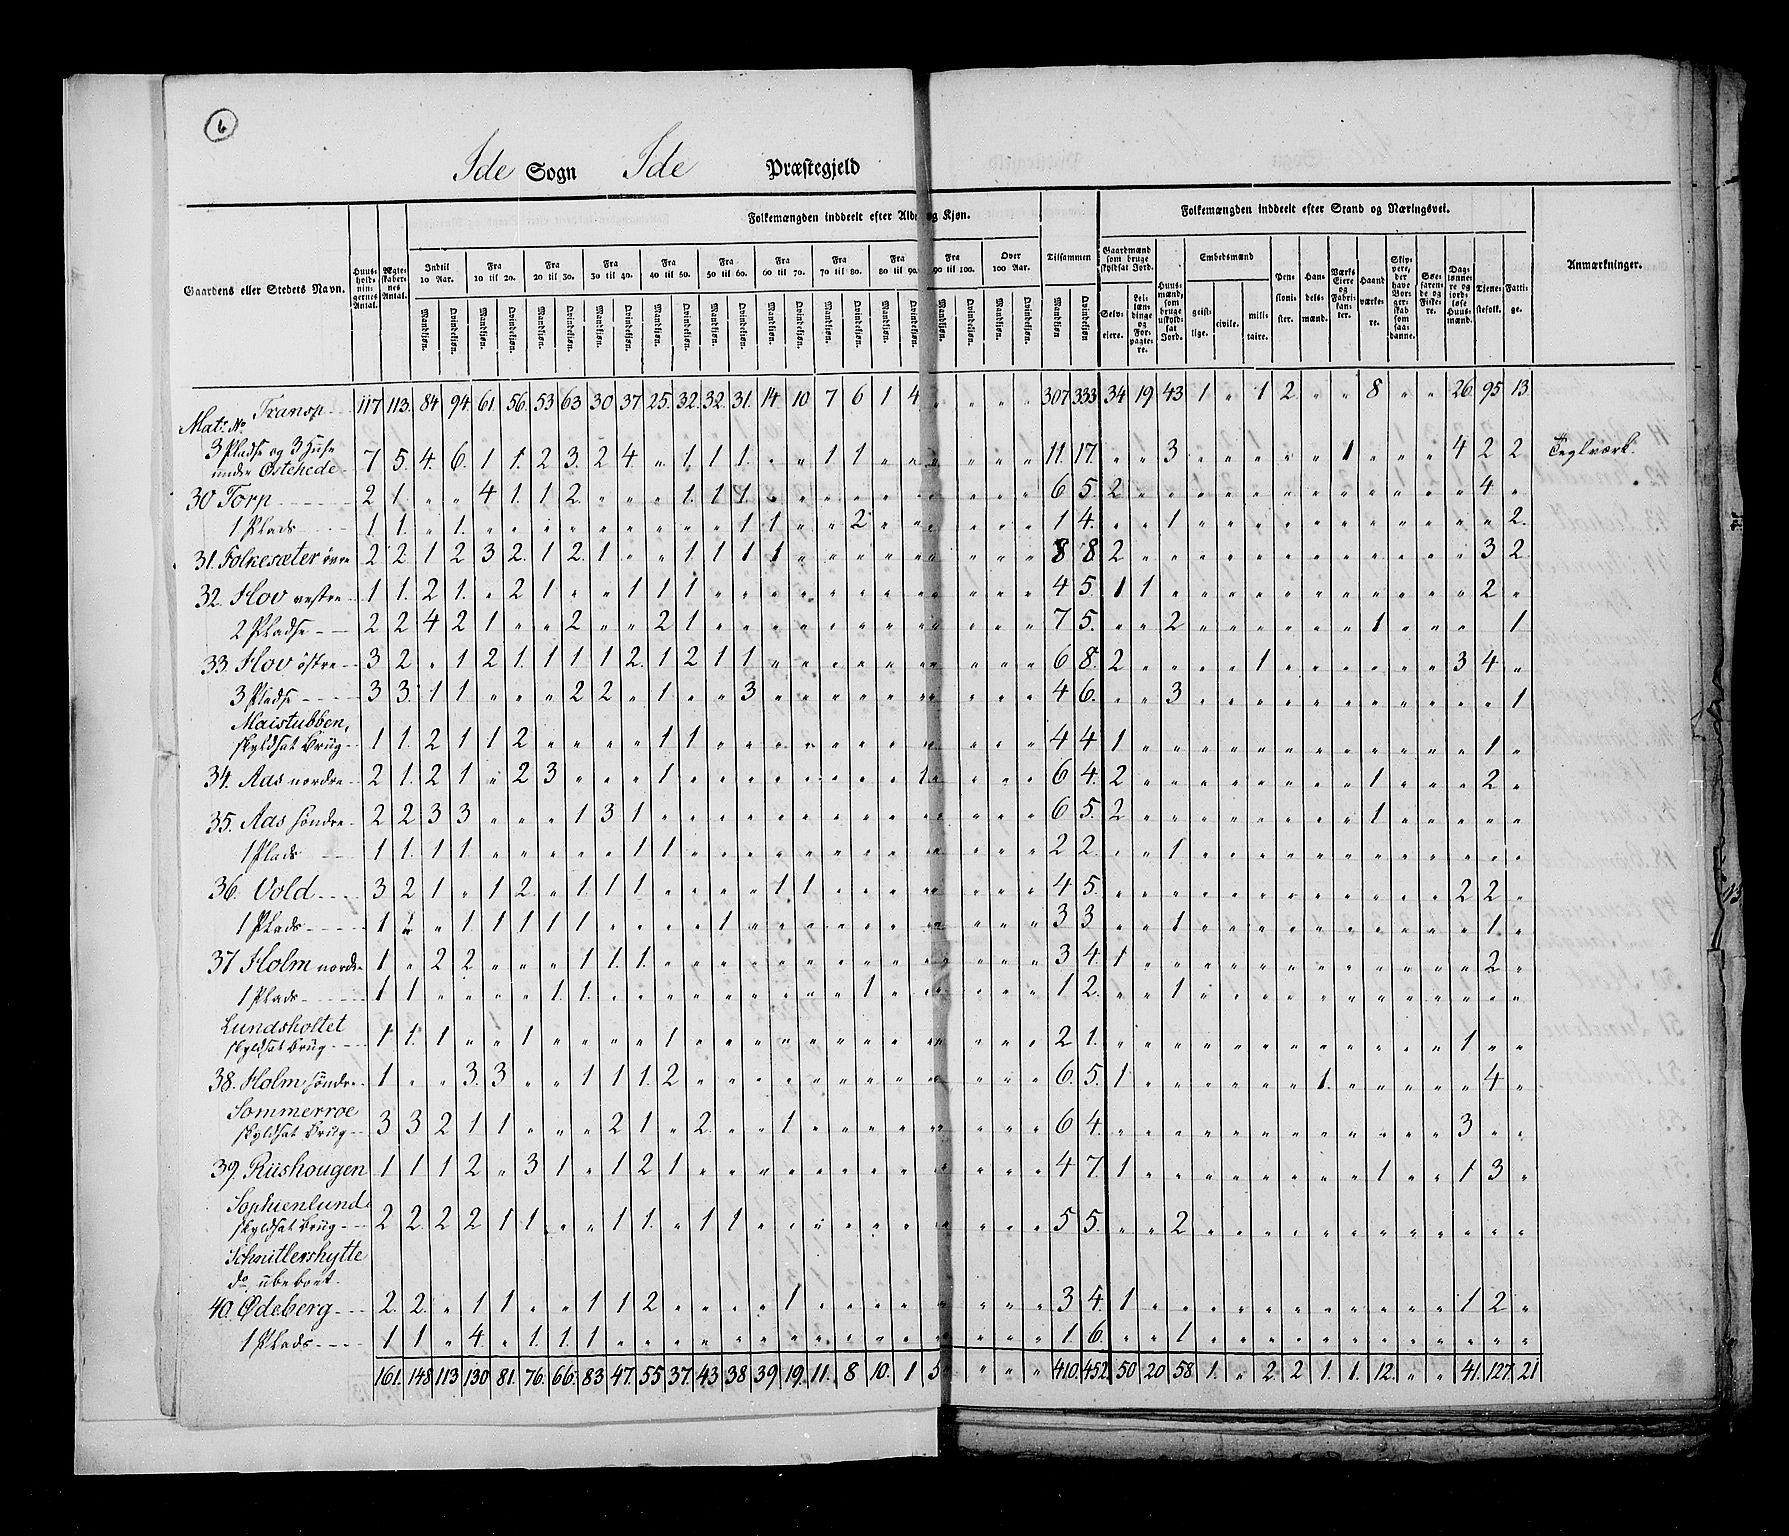 6
Ide Sogn Ide Præstegjeld
Gaardens eller Stedets Navn. Huusholdningernes Antal. Ægteskabernes Antal. Folkemængden inddeelt efter Alder og Kjøn. Tilsammen Folkemængden inddeelt efter Stand og Næringsvei. Anmærkninger.
Indtil 10 Aar. Fra 10 til 20. Fra 20 til 30. Fra 30 til 40. Fra 40 til 50. Fra 50 til 60. Fra 60 til 70. Fra 70 til 80. Fra 80 til 90. Fra 90 til 100. Over 100 Aar.
Gaardmænd som bruge skyldsat Jord. Huusmænd, som bruge uskyldsat Jord. Embedsmænd Pensionister. Handelsmænd. Værks Eiere og Fabrikanter. Haandværkere. Skippere, der have Borgerskab som saadanne. Søefarende og Fiskere. Daglønnere og jordløse Huusmænd. Tjenestefolk. Fattige.
Mandkjøn. Qvindekjøn. Mandkjøn. Qvindekjøn. Mandkjøn. Qvindekjøn. Mandkjøn. Qvindekjøn. Mandkjøn. Qvindekjøn. Mandkjøn. Qvindekjøn. Mandkjøn. Qvindekjøn. Mandkjøn. Qvindekjøn. Mandkjøn. Qvindekjøn. Mandkjøn. Qvindekjøn. Mandkjøn. Qvindekjøn. Mandkjøn Qvindekjøn Selveiere. Leilændinge og Forpagtere. geistlige. civile. militaire.
Transp. 117 113. 84 94. 61 56. 53 63. 30 37 25. 32. 32. 31. 14 10 7 6 1 4 " " " " 307 333 34 19 43 1 " 1 2 " " 8 " " 26. 95 13
Matr. No
3 Pladse og 3 Huse
under Östehede 7 5. 4. 6. 1 1. 2 3. 2 4. " 1. 1 1. " " 1 1 " " " " " " 11. 17. " " 3 " " " " " 1 " " " 4 2 2 Teglværk.
30 Torp 2 1. " " 4 1. 1 2 " " " 1. 1 1. " " " " " " " " " " 6 5. 2 " " " " " " " " " " " " 4 "
1 Plads 1 1. " 1. " " " " " " " " " 1 1. " " 2 " " " " " " 1 4. " " 1 " " " " " " " " " " " 2.
31. Folkesæter övre 2 2 1 2 3 2. 1 2. 1 " " 1 1 1 1 " " " " " " " " " 8 8 2 " " " " " " " " " " " " 3 2
32. Hov vestre 1 1. 2 1. " 2 1 " " 1 1 1 " " " " " " " " " " " " 4 5. 1 1 " " " " " " " " " " " 2 "
2 Pladse 2 2 4 2 1 " " 2 " " 2 1 " " " " " " " " " " " " 7 5. " " 2 " " " " " " 1 " " " 1
33 Hov östre 3 2 " 1 2 1. 1 1 1 2. 1 2 1 1 " " " " " " " " " " 6 8. 2 " " " " 1 " " " " " " 3 4 "
3 Pladse 3 3. 1 1 " " " 2 2 " 1 " " 3 " " " " " " " " " " 4 6. " " 3 " " " " " " " " " " " 1
Maistubben,
skyldsat Brug 1 1. 2 1 1 2 " " " " 1 1 " " " " " " " " " " " " 4 4 1 " " " " " " " " " " " " 1 "
34. Aas nordre 2 1. 2 1 " 2 3 " " " 1 " " " " " " " " 1 " " " " 6 4. 2 " " " " " " " " 1 " " " 2 "
35. Aas söndre 2 2 3 3 " " " 1 3 1 " " " " " " " " " " " " " " 6 5. 2 " " " " " " " " 1 " " " " "
1 Plads 1 1. 1 1 " " " " " 1 1 " " " " " " " " " " " " " 2 2. " " 1 " " " " " " " " " " " "
36. Vold 3 2 1 " 1 2. " 1 1 1 " " " " 1 1 " " " " " " " " 4 5. " " " " " " " " " " " " 2 2 "
1 Plads 1 " " 1 1 1 1 1 " " " " 1 " " " " " " " " " " " 3 3 " " 1 " " " " " " " " " " 1 "
37 Holm nordre 1 " 2 2 " " " 1 1. 1. " " " " " " " " " " " " " " 3 4. 1 " " " " " " " " " " " " 2 "
1 Plads 1 1 " " " " 1. 1. " " " " " " " " " 1 " " " " " " 1 2. " " 1 " " " " " " " " " " " "
Lundsholtet
skyldsat Brug 1 1. 1 " " 1 " " " " 1 " " " " " " " " " " " " " 2 1. " " " " " " " " " " " " 1 " "
38. Holm söndre 1 " " 3. 3 " " 1 1 1. 2 " " " " " " " " " " " " " 6. 5. 1 " " " " " " " 1. " " " " 4 "
Sommerroe
skyldsat Brug 3 3 2 1 1 " " " 2 1 " 2. " " 1 " " " " " " " " " 6 4. " " " " " " " " " " " " 3 " "
39. Rüshougen 1 1 1 2 " 3 1 " 1 2 1 " " " " " " " " " " " " " 4 7. 1 " " " " " " " " 1 " " 1 3 "
Sophienlund
skyldsat Brug 2 2. 2 2 1 1 " " 1 1. " 1 1 " " " " " " " " " " " 5 5. " " 2 " " " " " " " " " " " "
Schnitlershytte
do ubeboet.
40. Ødeberg 2. 2. " 1 1 " " 1 1 2 " " " " 1 " " " " " " " " " 3 4. 1 " " " " " " " " " " " 1 2 "
1 Plads 1 1 " 4. " 1. 1. 1 " " " " " " " " " " " " " " " " 1. 6. " " 1 " " " " " " " " " " " "
161. 148 113 130 81. 76. 66. 83 47. 55 37. 43. 38 39 19. 11. 8 10. 1 5 " " " " 410. 452. 50 20 58 1. " 2. 2 1. 1. 12. " " 41. 127. 21